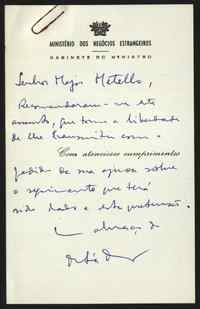 MINISTÉRIO DOS NEGÓCIOS ESTRANGEIROS
GABINETE DO MINISTRO
Senhor Major Metello,
Recomendaram-me este
assunto, que tomo a liberdade
de lhe transmitir com o
Com atenciosos cumprimentos
pedido de me sobre
o seguimento que terá
sido dado a esta pretensão.
abraço do